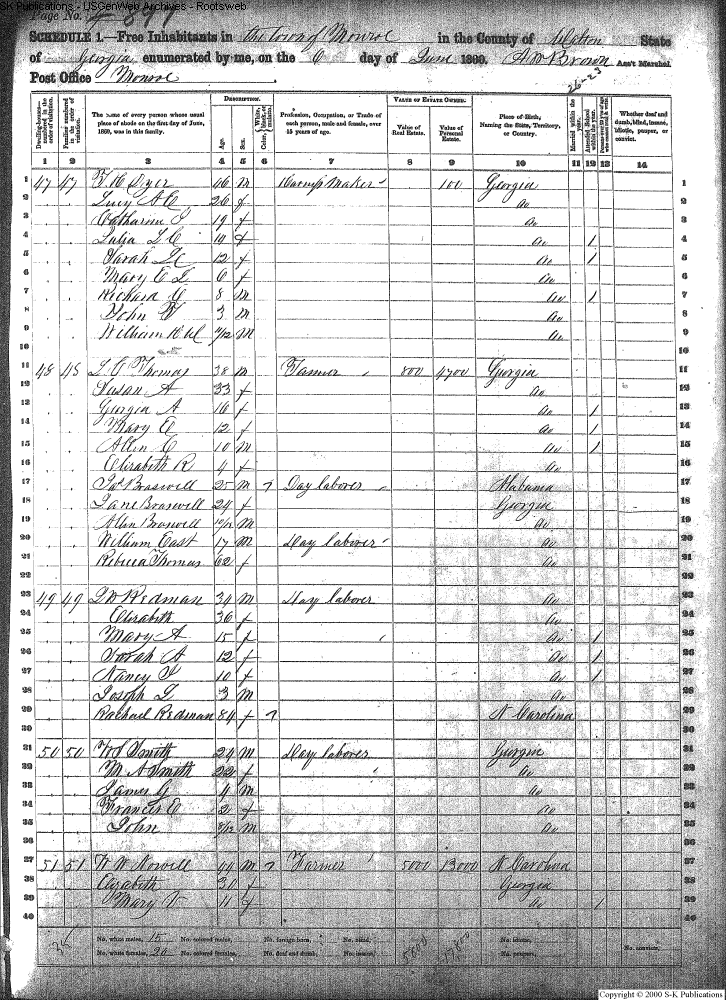 SK Publications - USGenWeb Archives - Rootsweb
Page No. 4 897
SCHEDULE 1.—Free Inhabitants in the town of Monroe in the County of Walton State
of Georgia enumerated by me, on the 6 day of June 1860. A M Brown Ass't Marshal.
Post Office Monroe
26-23
Dwelling-houses—numbered in the order of visitation. Families numbered in the order of visitation. The name of every person whose usual place of abode on the first day of June, 1860, was in this family. DESCRIPTION. Age. Sex. Color, White, black, or mulatto. Profession, Occupation, or Trade of each person, male and female, over 15 years of age. VALUE OF ESTATE OWNED. Value of Real Estate. Value of Personal Estate. Place of Birth, Naming the State, Territory, or Country. Married within the year. Attended School within the year. Whether deaf and dumb, blind, insane, idiotic, pauper, or convict.
1 2 3 4 5 6 7 8 9 10 11 12 13 14
1 47 47 46 m Maker 100 Georgia 1
2 Lucy A C 26 f Do 2
3 Catharine J 19 f Do 3
4 Julia L C 19 f Do / 4
5 Sarah 12 f Do / 5
6 Mary E L 6 f Do 6
7 Richard G 8 m Do / 7
8 John W 3 m Do 8
9 William /12 m Do 9
10
11 48 48 L C Thomas 38 m Farmer 800 4700 Georgia 11
12 Susan A 33 f Do 12
13 Georgia A 16 f Do / 13
14 Mary E 12 f Do / 14
15 Allen C 10 m Do / 15
16 Elizabeth R 4 f Do 16
17 Jas Braswell 25 m 7 Day laborer Alabama 17
18 Jane Braswell 24 f Georgia 18
19 Allen Braswell 10/12 m Do 19
20 William East 17 m Day laborer Do 20
21 Rebecca Thomas 62 f Do 21
22
23 49 49 Redman 34 m Day laborer Do 23
24 Elizabeth 36 f Do 24
25 Mary A 15 f Do / 25
26 Sarah A 12 f Do / 26
27 Nancy J 10 f Do / 27
28 Joseph L 3 m Do 28
29 Rachael Redman 84 f 7 N Carolina 29
30
31 50 50 W S Smith 24 m Day laborer Georgia 31
32 M A Smith 22 f Do 32
33 James G 4 m Do 33
34 Francis E 2 f Do 34
35 John /12 m Do 35
36
37 51 51 W W Nowell 44 m 7 Farmer 5000 13000 N Carolina 37
38 Elizabeth 30 f Georgia 38
39 Mary V 11 f Do / 39
40
No. white males, 15 No. colored males, No. foreign born, No. blind, 5800 17800 No. idiotic, No. convicts,
No. white females, 20 No. colored females, No. deaf and dumb, No. insane, No. paupers,
Copyright © 2000 S-K Publications